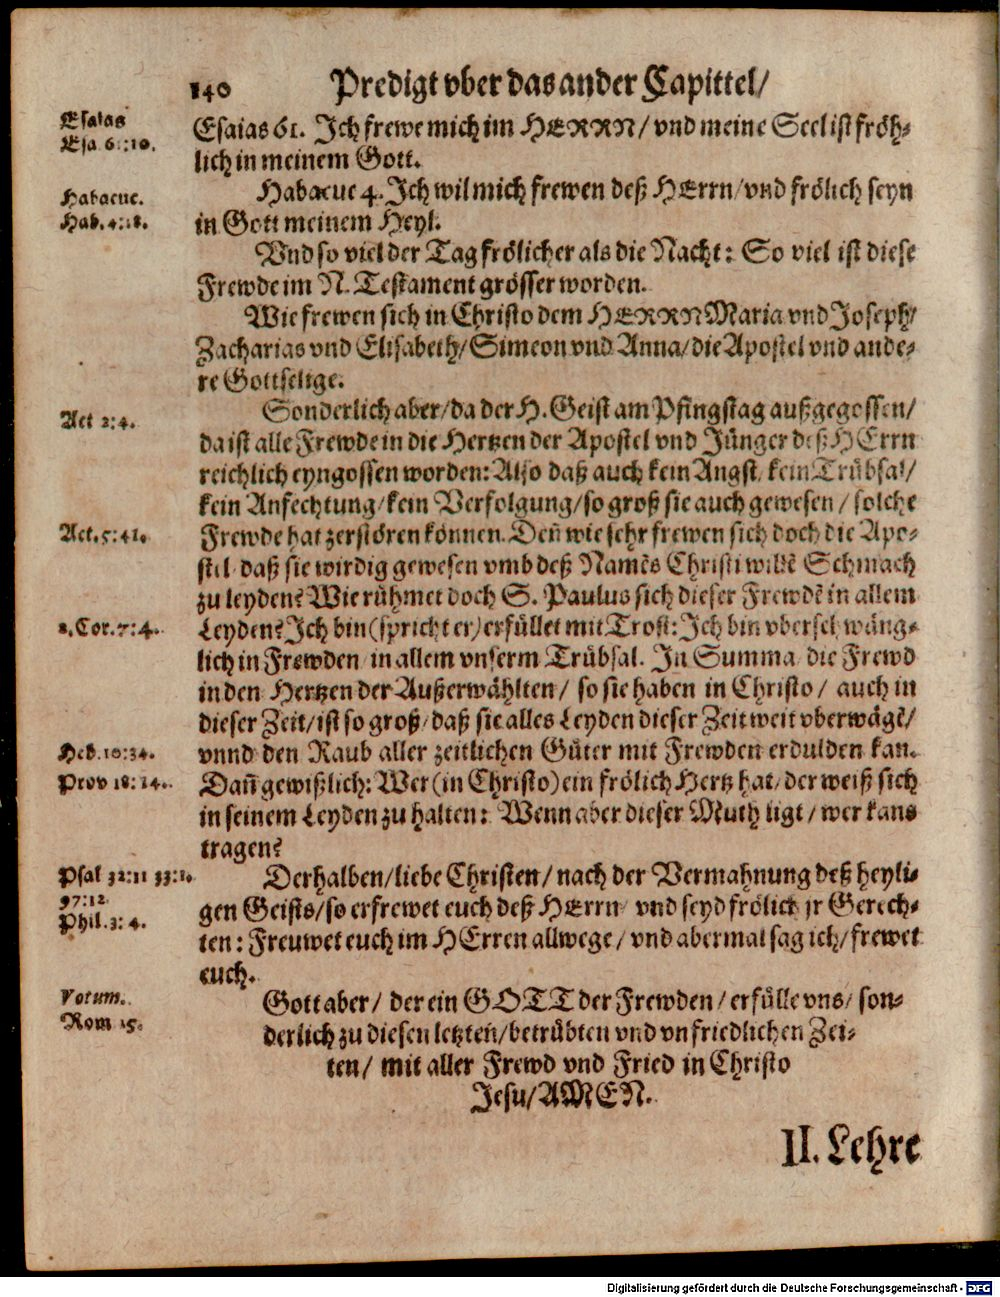 140 Predigt vber das ander Capittel/
Esaias
Esa 61:10.
Esaias 61. Ich frewe mich im HERRN/ vnd meine Seel ist fröh-
lich in meinem Gott.
Habacuc.
Hab. 4:18.
Habacuc 4. Ich wil mich frewen deß HErrn/ vnd frölich seyn
in Gott meinem Heyl.
Vnd so viel der Tag frölicher als die Nacht: So viel ist diese
Frewde im N. Testament grösser worden.
Wie frewen sich in Christo dem HERRN Maria vnd Joseph/
Zacharias vnd Elisabeth/ Simeon vnd Anna/ die Apostel vnd ande-
re Gottselige.
Act 2:4.
Sonderlich aber/ da der H. Geist am Pfingstag außgegossen/
da ist alle Frewde in die Hertzen der Apostel vnd Jünger deß HErrn
reichlich eyngossen worden: Also daß auch kein Angst/ kein Trübsal/
kein Anfechtung/ kein Verfolgung/ so groß sie auch gewesen/ solche
Act. 5:41.
Frewde hat zerstören können. Deñ wie sehr frewen sich doch die Apo-
stel daß sie wirdig gewesen vmb deß Namẽs Christi willẽ Schmach
zu leyden? Wie rühmet doch S. Paulus sich dieser Frewdẽ in allem
2. Cor. 7:4.
Leyden? Ich bin (spricht er) erfüllet mit Trost: Ich bin vberschwäng-
lich in Frewden/ in allem vnserm Trübsal. In Summa/ die Frewd
in den Hertzen der Außerwählten/ so sie haben in Christo/ auch in
dieser Zeit/ ist so groß/ daß sie alles Leyden dieser Zeit weit vberwägẽ/
Heb. 10:34.
vnnd den Raub aller zeitlichen Güter mit Frewden erdulden kan.
Prov 18:14.
Dañ gewißlich: Wer (in Christo) ein frölich Hertz hat/ der weiß sich
in seinem Leyden zu halten: Wenn aber dieser Muth ligt/ wer kans
tragen?
Psal 32:11 33:1.
97:12
Phil. 3:4.
Derhalben/ liebe Christen/ nach der Vermahnung deß heyli-
gen Geists/ so erfrewet euch deß HErrn/ vnd seyd frölich jr Gerech-
ten: Freuwet euch im HErren allwege/ vnd abermal sag ich/ frewet
euch.
Votum.
Rom 15.
Gott aber/ der ein GOTT der Frewden/ erfülle vns/ son-
derlich zu diesen letzten/ betrübten vnd vnfriedlichen Zei-
ten/ mit aller Frewd vnd Fried in Christo
Jesu/ AMEN.
II. Lehre
Digitalisierung gefördert durch die Deutsche Forschungsgemeinschaft - DFG